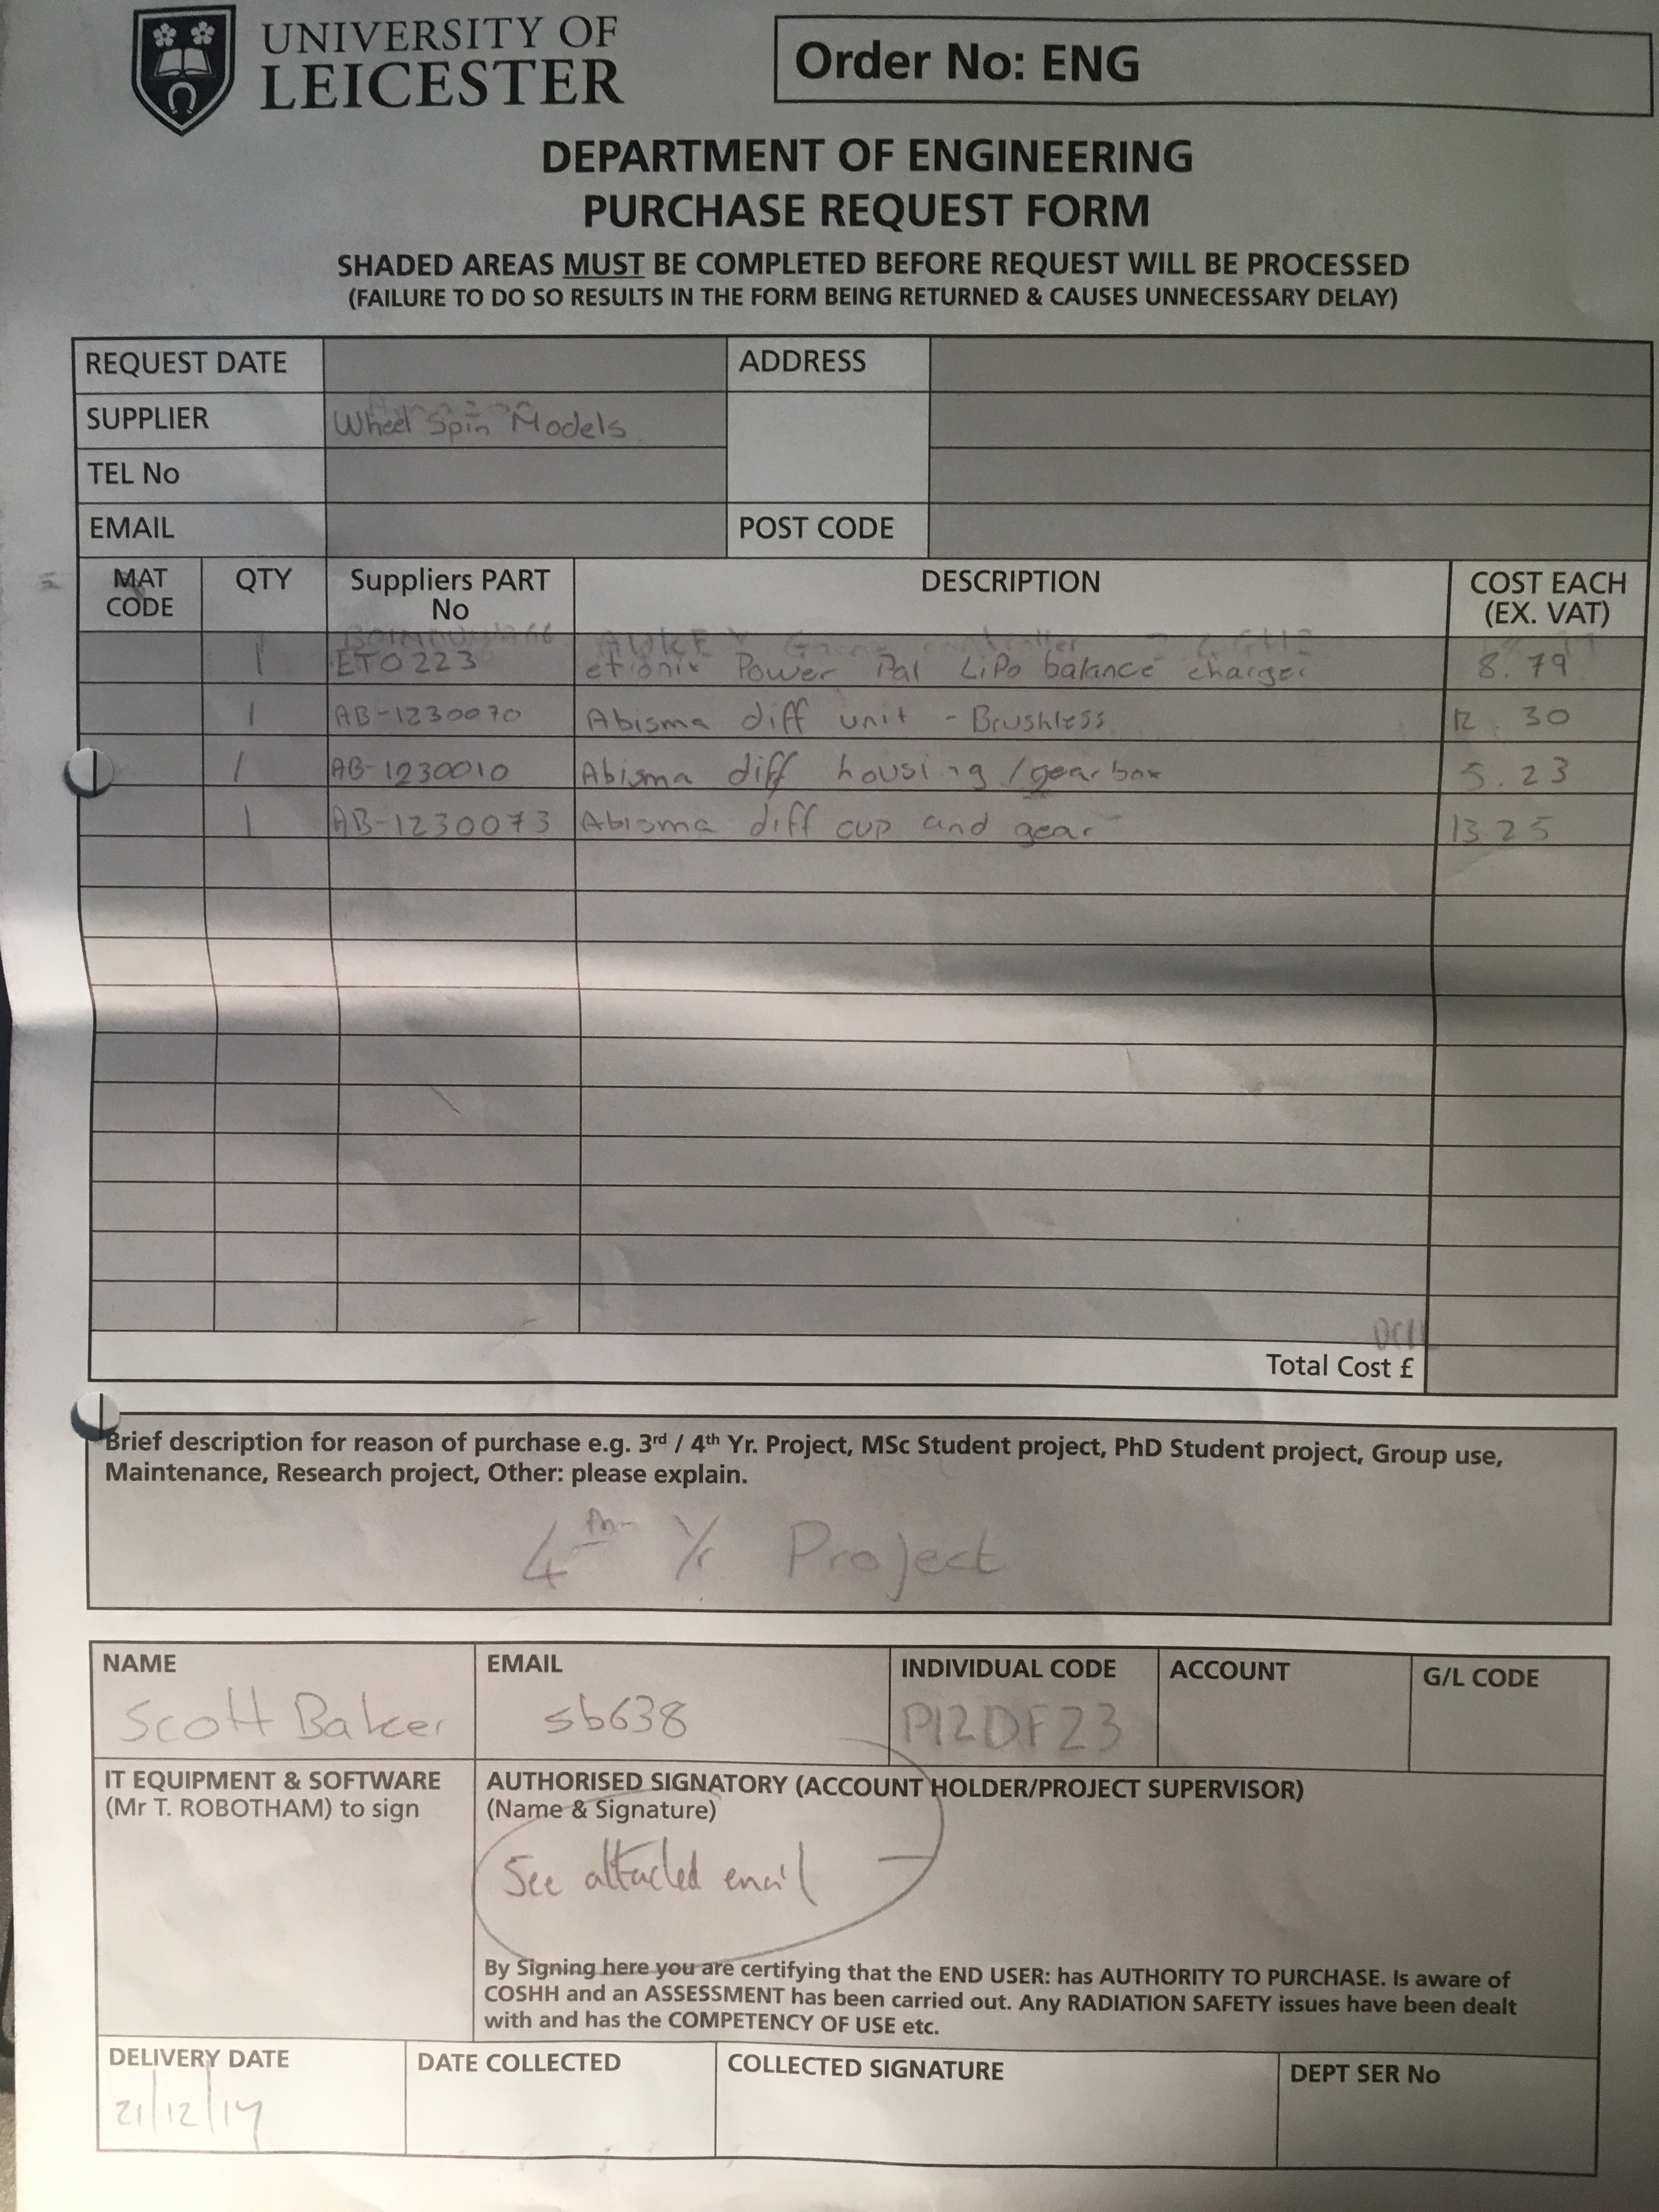 UNIVERSITY OF
LEICESTER
Order No: ENG
DEPARTMENT OF ENGINEERING
PURCHASE REQUEST FORM
SHADED AREAS MUST BE COMPLETED BEFORE REQUEST WILL BE PROCESSED
(FAILURE TO DO SO RESULTS IN THE FORM BEING RETURNED & CAUSES UNNECESSARY DELAY)
REQUEST DATE ADDRESS
SUPPLIER Wheel Spin Models
TEL No
EMAIL POST CODE
MAT CODE QTY Suppliers PART No DESCRIPTION COST EACH (EX. VAT)
1 ET0223 etronix Power Pal LiPo balance charger 8.79
1 AB-1230070 Abisma diff unit - Brushless 12.30
1 AB-1230010 Abisma diff housing/gearbox 5.23
1 AB-1230073 Abisma diff cup and gear 13.25
Total Cost £
Brief description for reason of purchase e.g. 3rd / 4th Yr. Project, MSc Student project, PhD Student project, Group use,
Maintenance, Research project, Other: please explain.
4th Yr Project
NAME EMAIL INDIVIDUAL CODE ACCOUNT G/L CODE
Scott Baker sb638 P12DF23
IT EQUIPMENT & SOFTWARE
(Mr T. ROBOTHAM) to sign
AUTHORISED SIGNATORY (ACCOUNT HOLDER/PROJECT SUPERVISOR)
(Name & Signature)
See attached email
By Signing here you are certifying that the END USER: has AUTHORITY TO PURCHASE. Is aware of
COSHH and an ASSESSMENT has been carried out. Any RADIATION SAFETY issues have been dealt
with and has the COMPETENCY OF USE etc.
DELIVERY DATE DATE COLLECTED COLLECTED SIGNATURE DEPT SER No